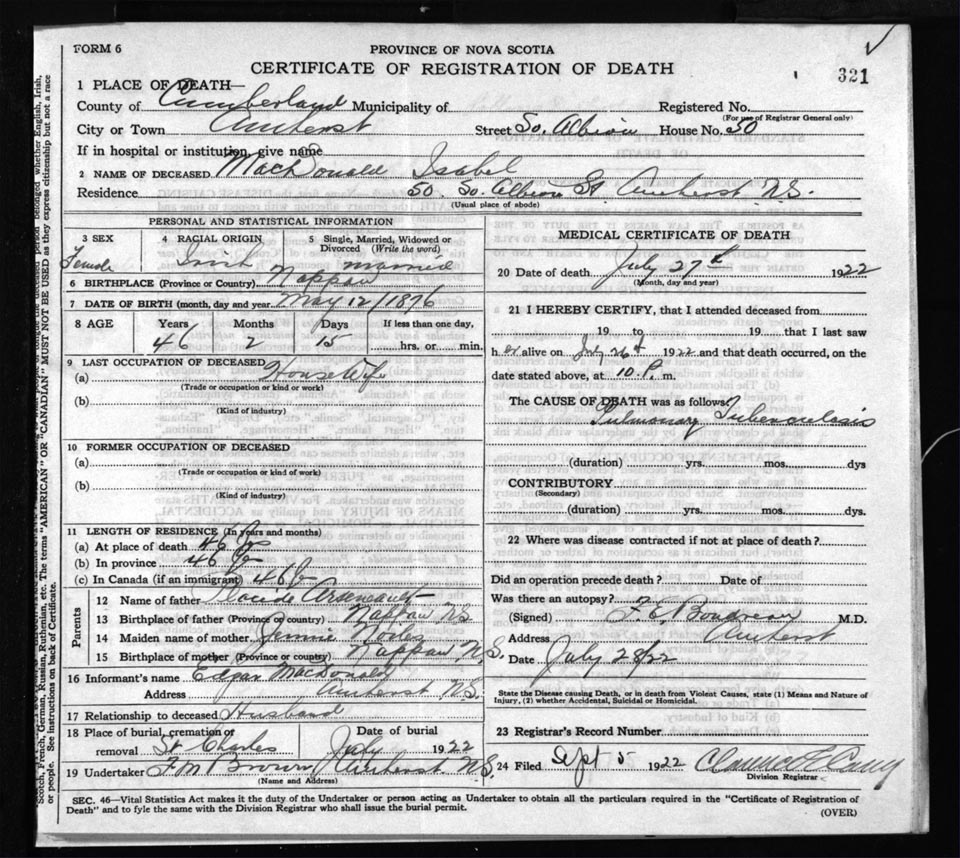 FORM 6
PROVINCE OF NOVA SCOTIA
CERTIFICATE OF REGISTRATION OF DEATH
321
1 PLACE OF DEATH—
County of Cumberland Municipality of
Registered No.
(For use of Registrar General only)
City or Town Amherst Street So. Albion House No. 50
If in hospital or institution, give name
2 NAME OF DECEASED MacDonald Isabel
Residence 50 So. Albion St Amherst N.S.
(Usual place of abode)
PERSONAL AND STATISTICAL INFORMATION
3 SEX
Female
4 RACIAL ORIGIN
Irish
5 Single, Married, Widowed or Divorced (Write the word)
Married
6 BIRTHPLACE (Province or Country) Nappan
7 DATE OF BIRTH (month, day and year May 12/1876
8 AGE
Years
46
Months
2
Days
15
If less than one day,
hrs. or min.
9 LAST OCCUPATION OF DECEASED
(a) House Wife
(Trade or occupation or kind or work)
(b)
(Kind of industry)
10 FORMER OCCUPATION OF DECEASED
(a)
(Trade or occupation or kind of work)
(b)
(Kind of industry)
11 LENGTH OF RESIDENCE (In years and months)
(a) At place of death 46
(b) In province 46
(c) In Canada (if an immigrant) 46
Parents
12 Name of father Arseneault
13 Birthplace of father (Province or country) Nappan NS
14 Maiden name of mother Jennie
15 Birthplace of mother (Province or country) Nappan N.S.
16 Informant's name Edgar MacDonald
Address Amherst N.S.
17 Relationship to deceased Husband
18 Place of burial, cremation or removal St Charles
Date of burial
July 1922
19 Undertaker F M Brown Amherst N.S.
(Name and Address)
MEDICAL CERTIFICATE OF DEATH
20 Date of death July 27 1922
(Month, day and year)
21 I HEREBY CERTIFY, that I attended deceased from
19 to 19 that I last saw
h er alive on July 26 1922 and that death occurred, on the
date stated above, at 10 P. m.
The CAUSE OF DEATH was as follows:
Pulmonary Tuberculosis
(duration) yrs. mos. dys
CONTRIBUTORY
(Secondary)
(duration) yrs. mos. dys.
22 Where was disease contracted if not at place of death?
Did an operation precede death? Date of
Was there an autopsy?
(Signed) F. E. Boudreau M.D.
Address Amherst
Date July 28/22
State the Disease causing Death, or in death from Violent Causes, state (1) Means and Nature of
Injury, (2) whether Accidental, Suicidal or Homicidal.
23 Registrar's Record Number
24 Filed Sept 5 1922
Division Registrar
SEC. 46—Vital Statistics Act makes it the duty of the Undertaker or person acting as Undertaker to obtain all the particulars required in the "Certificate of Registration of
Death" and to fyle the same with the Division Registrar who shall issue the burial permit.
(OVER)